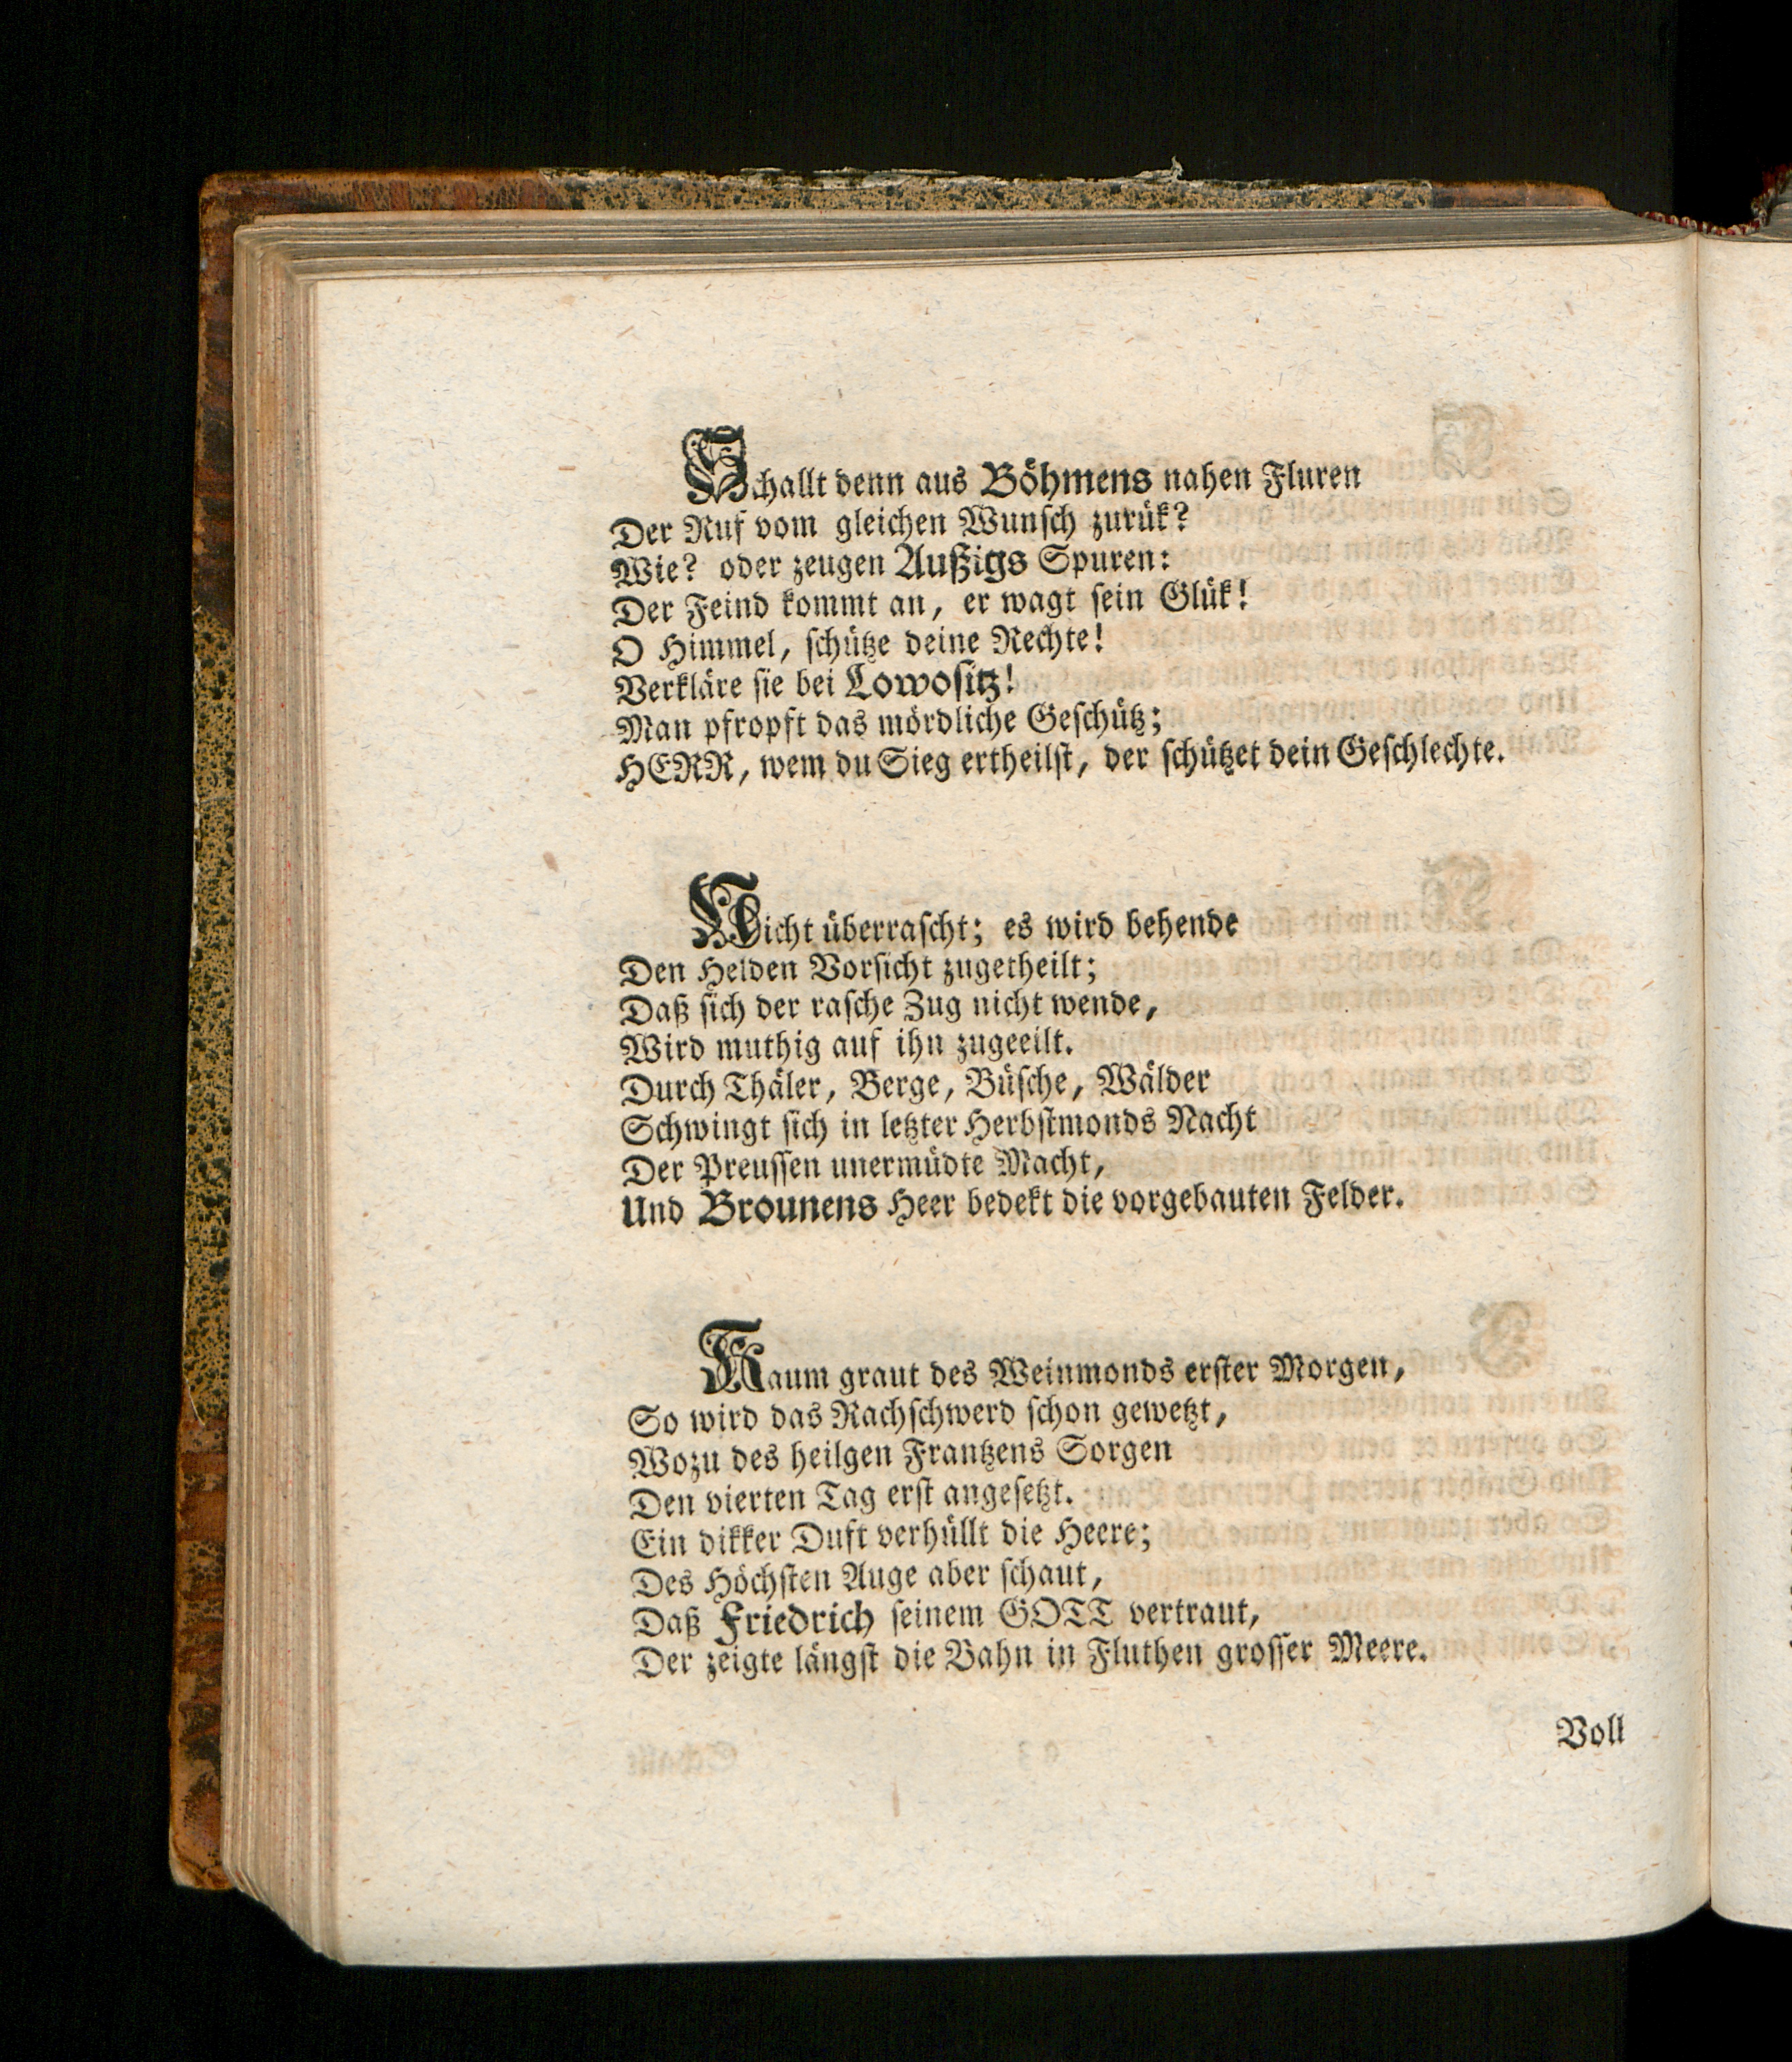 Schallt denn aus Böhmens nahen Fluren
Der Ruf vom gleichen Wunsch zurük?
Wie? oder zeugen Außigs Spuren:
Der Feind kommt an, er wagt sein Glük!
O Himmel, schütze deine Rechte!
Verkläre sie bei Lowositz!
Man pfropft das mördliche Geschütz;
HERR, wem du Sieg ertheilst, der schützet dein Geschlechte.
Nicht überrascht; es wird behende
Den Helden Vorsicht zugetheilt;
Daß sich der rasche Zug nicht wende,
Wird muthig auf ihn zugeeilt.
Durch Thäler, Berge, Büsche, Wälder
Schwingt sich in letzter Herbstmonds Nacht
Der Preussen unermüdte Macht,
Und Brounens Heer bedekt die vorgebauten Felder.
Kaum graut des Weinmonds erster Morgen,
So wird das Rachschwerd schon gewetzt,
Wozu des heilgen Frantzens Sorgen
Den vierten Tag erst angesetzt.
Ein dikker Duft verhüllt die Heere;
Des Höchsten Auge aber schaut,
Daß Friedrich seinem GOTT vertraut,
Der zeigte längst die Bahn in Fluthen grosser Meere.
Voll